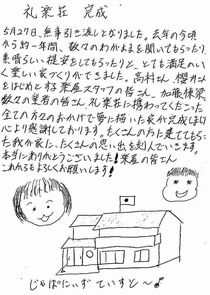 礼楽荘 完成
5月27日、無事引き渡しとなりました。去年の今頃
から約一年間、数々のわがままを聞いてもらったり、
素晴らしい提案をしてもらったりと、とても満足のい
く楽しい家づくりができました。高村さん、櫻井さん
をはじめとする楽屋スタッフの皆さん、加藤棟梁
数々の業者の皆さん 礼楽荘に携わってくださった
全ての方々のおかげで夢に描いた家が完成し
心より感謝しております。たくさんの方に建ててもらっ
た我が家に、たくさんの思い出を刻んでいきます。
本当にありがとうございました！楽屋の皆さん
これからもよろしくお願いします！
じゃぱにいず ていすと〜♪